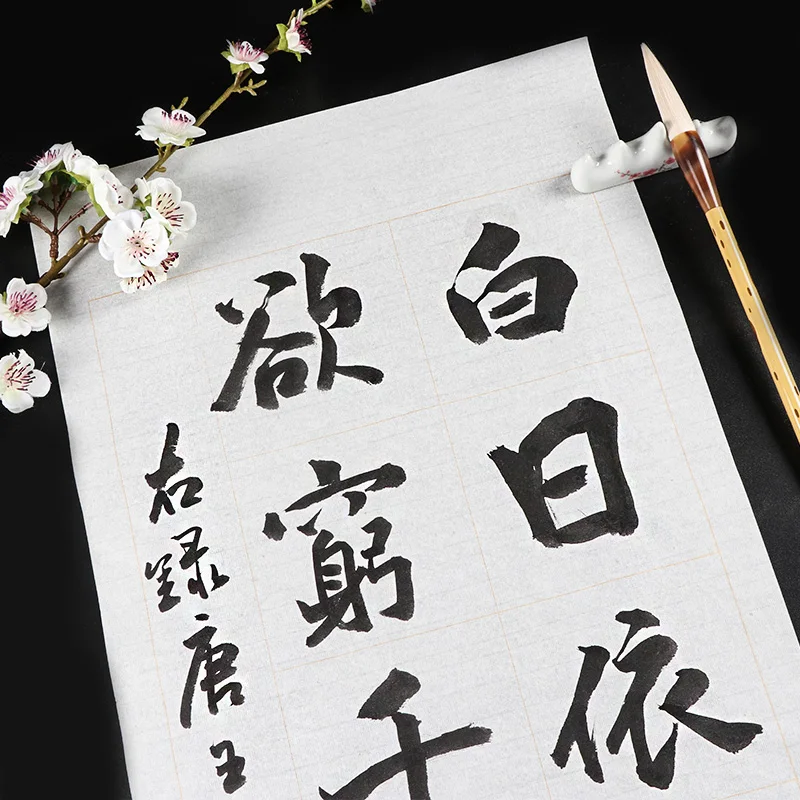 白日依
欲窮千
右録唐王